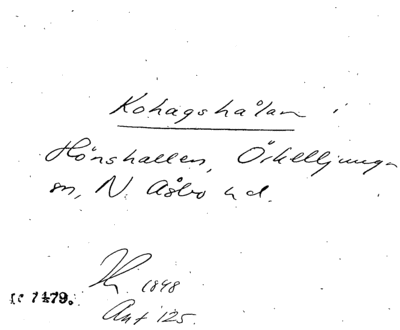 Kohagshålan i
Hönshallen, Örkelljunga
sn, N. Åsbo hd.
1898
Ant 125